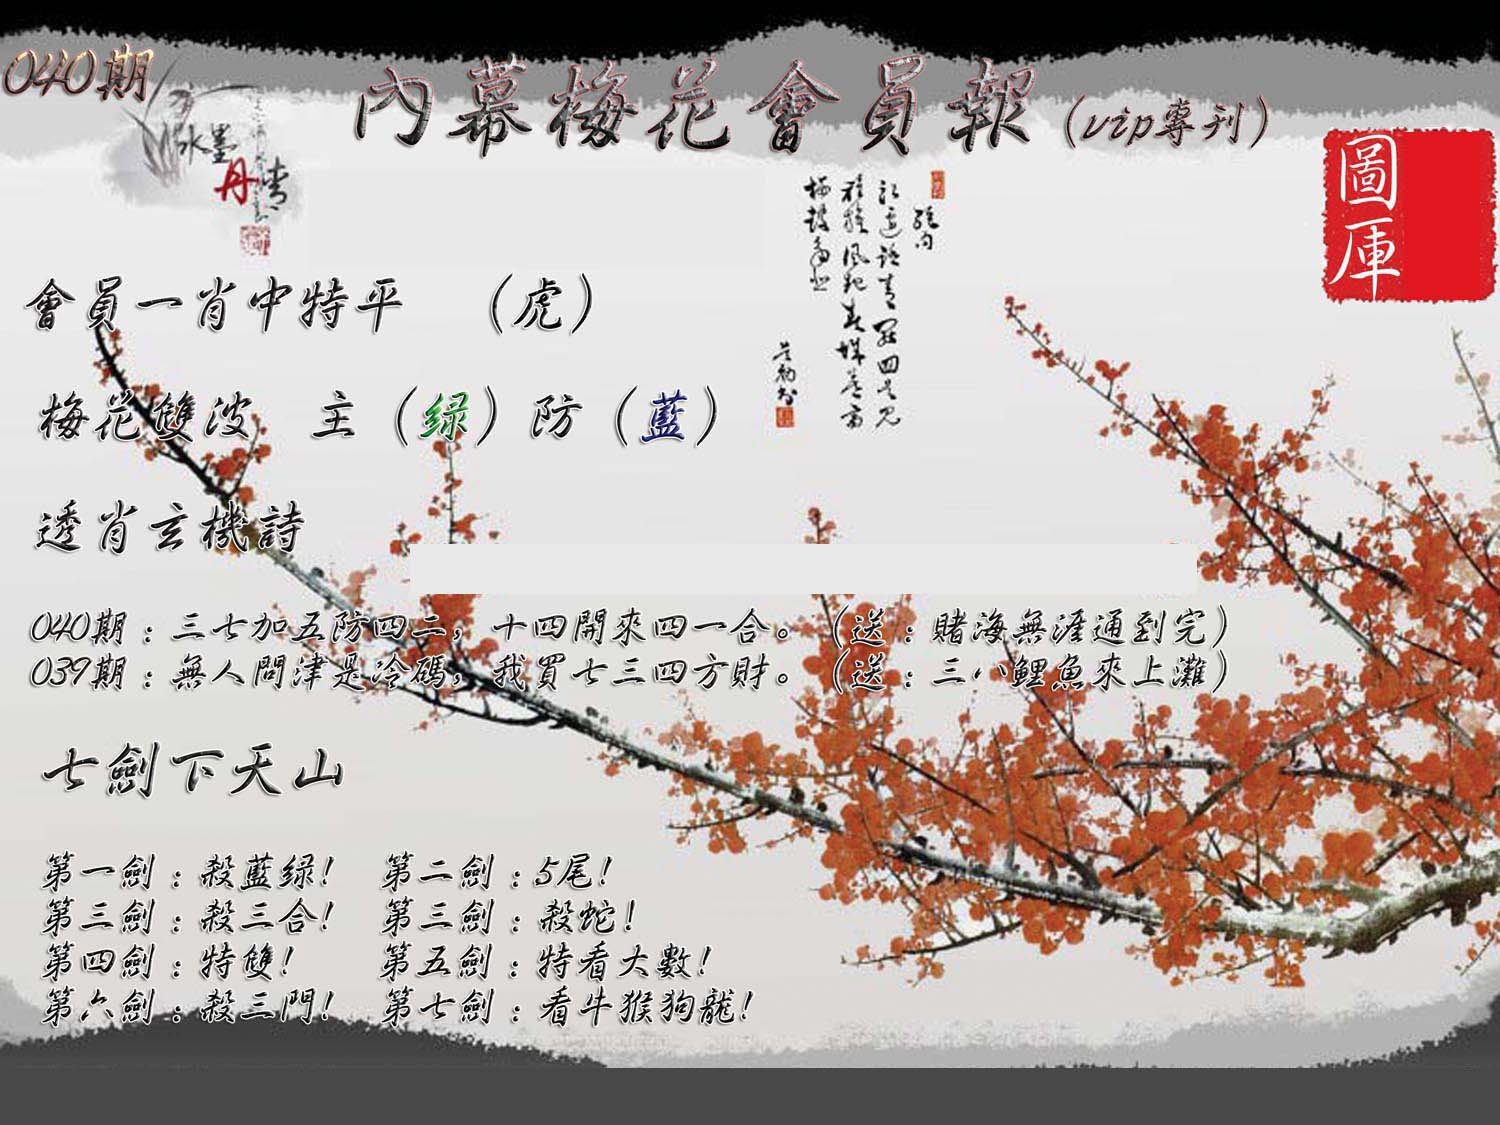 040期
內幕梅花會員報（vip專刊）
水墨
丹青
圖
庫
會員一肖中特平　（虎）
梅花雙波　主（绿）防（藍）
透肖玄機詩
040期：三七加五防四二，十四開來四一合。（送：賭海無涯通到完）
039期：無人問津是冷碼，我買七三四方財。（送：三八鯉魚來上灘）
七劍下天山
第一劍：殺藍绿！　第二劍：5尾！
第三劍：殺三合！　第三劍：殺蛇！
第四劍：特雙！　第五劍：特看大數！
第六劍：殺三門！　第七劍：看牛猴狗龍！